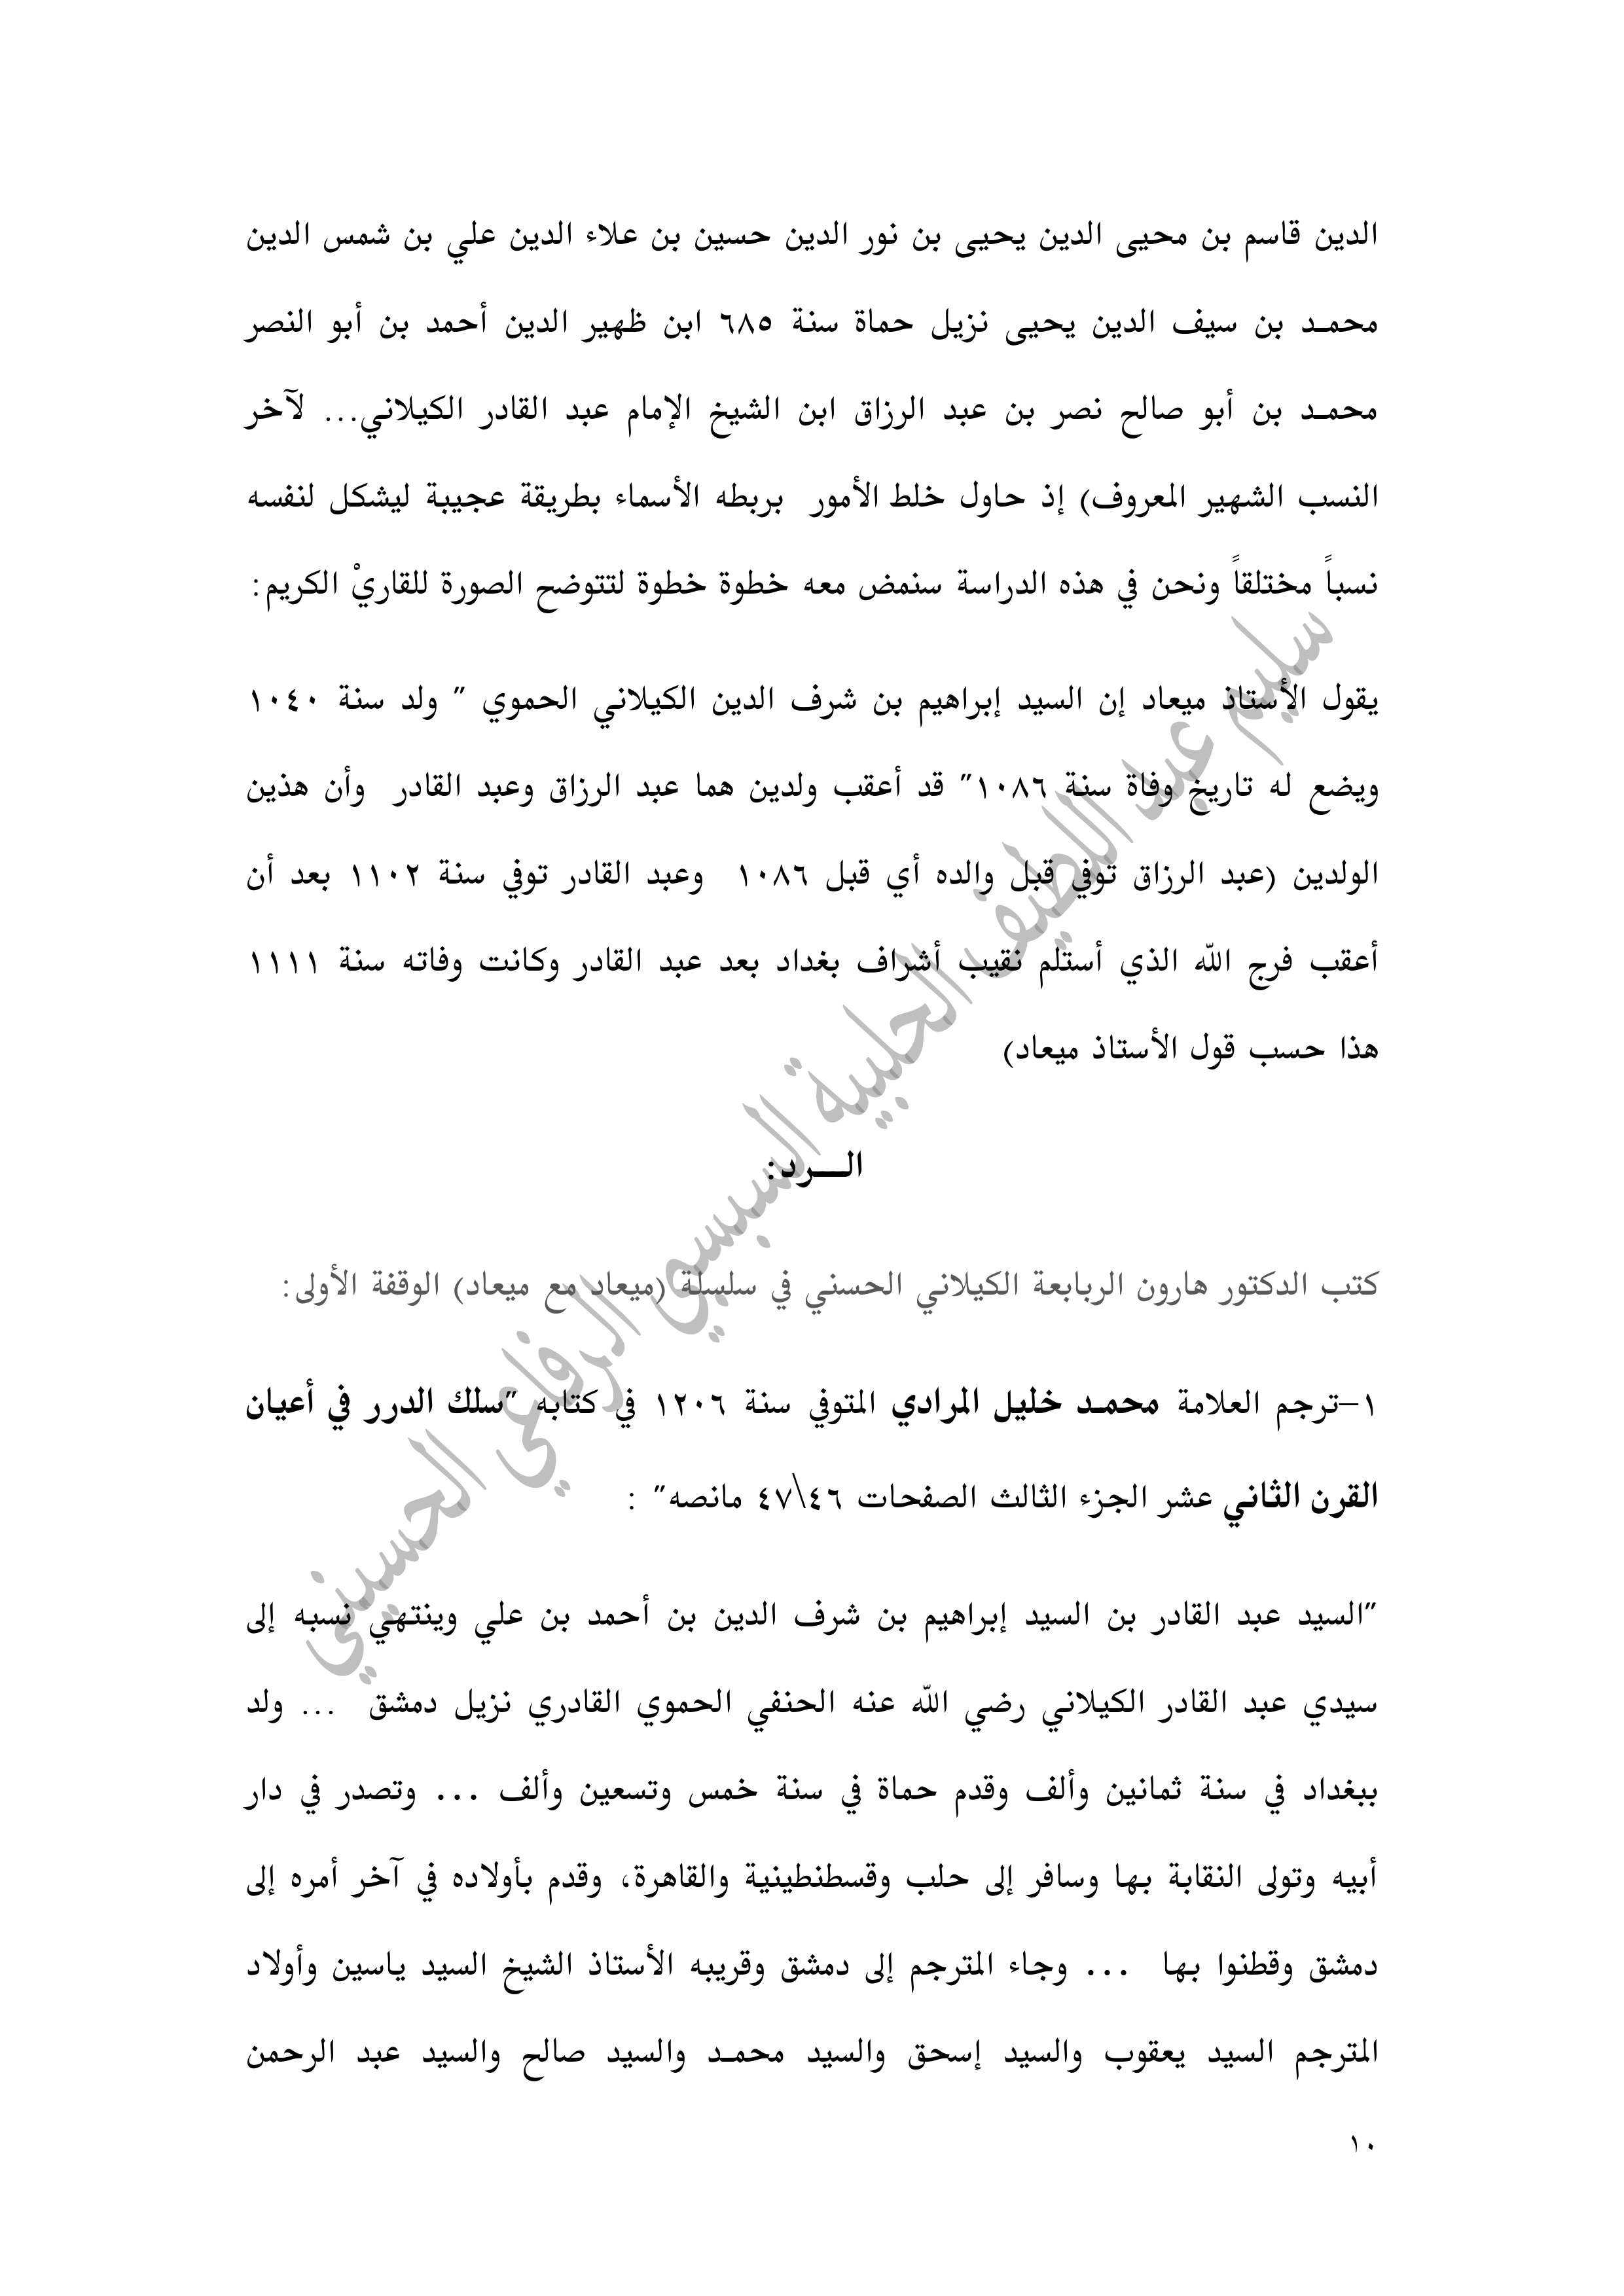 الدين قاسم بن محيى الدين يحيى بن نور الدين حسين بن علاء الدين علي بن شمس الدين
محمـد بن سيف الدين يحيى نزيل حماة سنة ٦٨٥ ابن ظهير الدين أحمد بن أبو النصر
محمـد بن أبو صالح نصر بن عبد الرزاق ابن الشيخ الإمام عبد القادر الكيلاني... لآخر
النسب الشهير المعروف) إذ حاول خلط الأمور بربطه الأسماء بطريقة عجيبة ليشكل لنفسه
نسباً مختلقاً ونحن في هذه الدراسة سنمض معه خطوة خطوة لتتوضح الصورة للقاريْ الكريم:
يقول الأستاذ ميعاد إن السيد إبراهيم بن شرف الدين الكيلاني الحموي " ولد سنة ١٠٤٠
ويضع له تاريخ وفاة سنة ١٠٨٦" قد أعقب ولدين هما عبد الرزاق وعبد القادر وأن هذين
الولدين (عبد الرزاق توفي قبل والده أي قبل ١٠٨٦ وعبد القادر توفي سنة ١١٠٢ بعد أن
أعقب فرج الله الذي أستلم نقيب أشراف بغداد بعد عبد القادر وكانت وفاته سنة ١١١١
هذا حسب قول الأستاذ ميعاد)
الـــرد:
كتب الدكتور هارون الربابعة الكيلاني الحسني في سلسلة (ميعاد مع ميعاد) الوقفة الأولى:
١-ترجم العلامة محمـد خليل المرادي المتوفي سنة ١٢٠٦ في كتابه "سلك الدرر في أعيان
القرن الثاني عشر الجزء الثالث الصفحات ٤٦\٤٧ مانصه" :
"السيد عبد القادر بن السيد إبراهيم بن شرف الدين بن أحمد بن علي وينتهي نسبه إلى
سيدي عبد القادر الكيلاني رضي الله عنه الحنفي الحموي القادري نزيل دمشق ... ولد
ببغداد في سنة ثمانين وألف وقدم حماة في سنة خمس وتسعين وألف ... وتصدر في دار
أبيه وتولى النقابة بها وسافر إلى حلب وقسطنطينية والقاهرة، وقدم بأولاده في آخر أمره إلى
دمشق وقطنوا بها ... وجاء المترجم إلى دمشق وقريبه الأستاذ الشيخ السيد ياسين وأولاد
المترجم السيد يعقوب والسيد إسحق والسيد محمـد والسيد صالح والسيد عبد الرحمن
١٠
سليم عبد اللطيف الحلبية السبسبي الرفاعي الحسيني